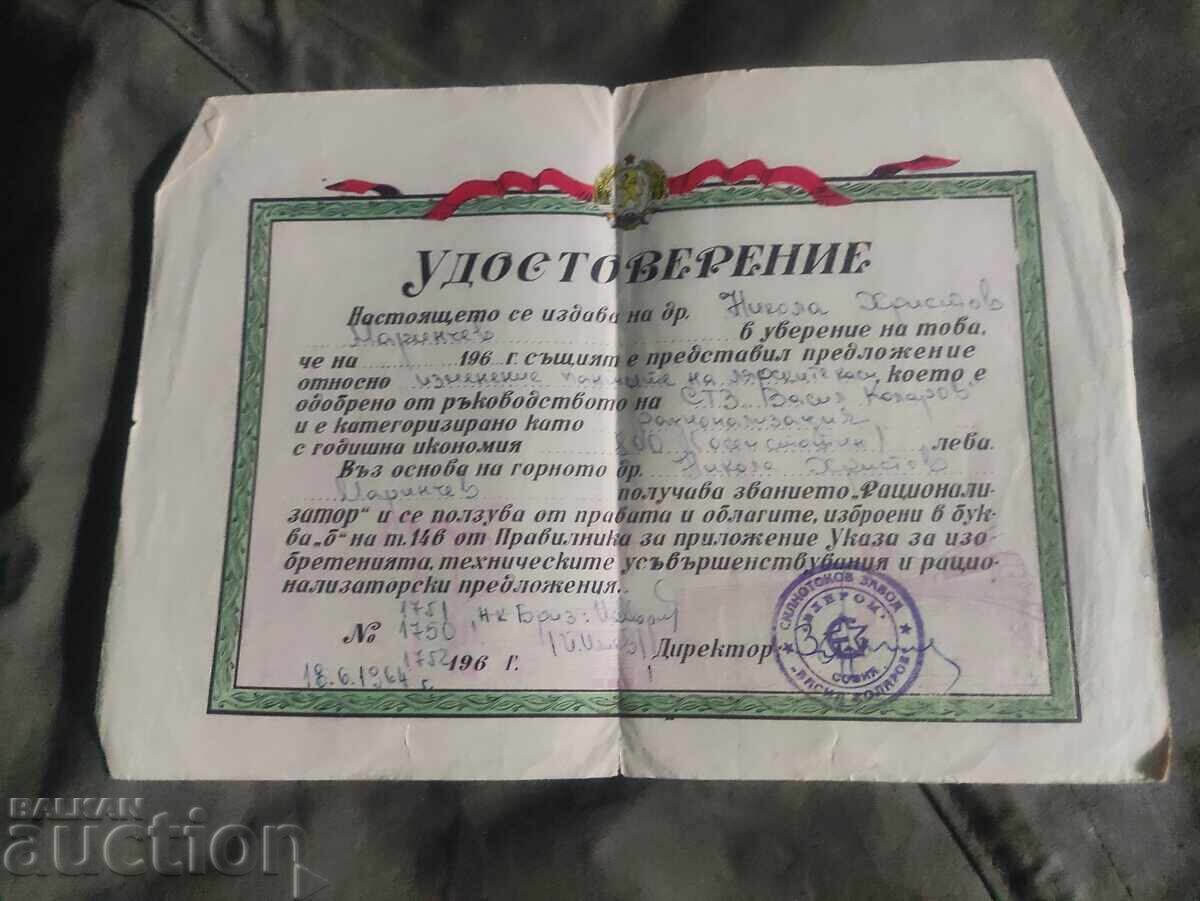 УДОСТОВЕРЕНИЕ
Настоящето се издава на др. Никола Христов
Маринчев в уверение на това,
че на 196 г. същият е представил предложение
относно изменение на каси, което е
одобрено от ръководството на СТЗ "Васил Коларов"
и е категоризирано като рационализация
с годишна икономия 800 (осемстотин) лева.
Въз основа на горното др. Никола Христов
Маринчев получава званието „Рационали-
затор“ и се ползува от правата и облагите, изброени в бук-
ва „б“ на т. 146 от Правилника за приложение Указа за изо-
бретенията, техническите усъвършенствувания и рацио-
нализаторски предложения.
1751
№ 1750 Н-к Бриз:
1752
196 г. Директор:
18.6.1964 г.
СИЛНОТОКОВ ЗАВОД
СОФИЯ
„ВАСИЛ КОЛАРОВ“
BALKAN
auction